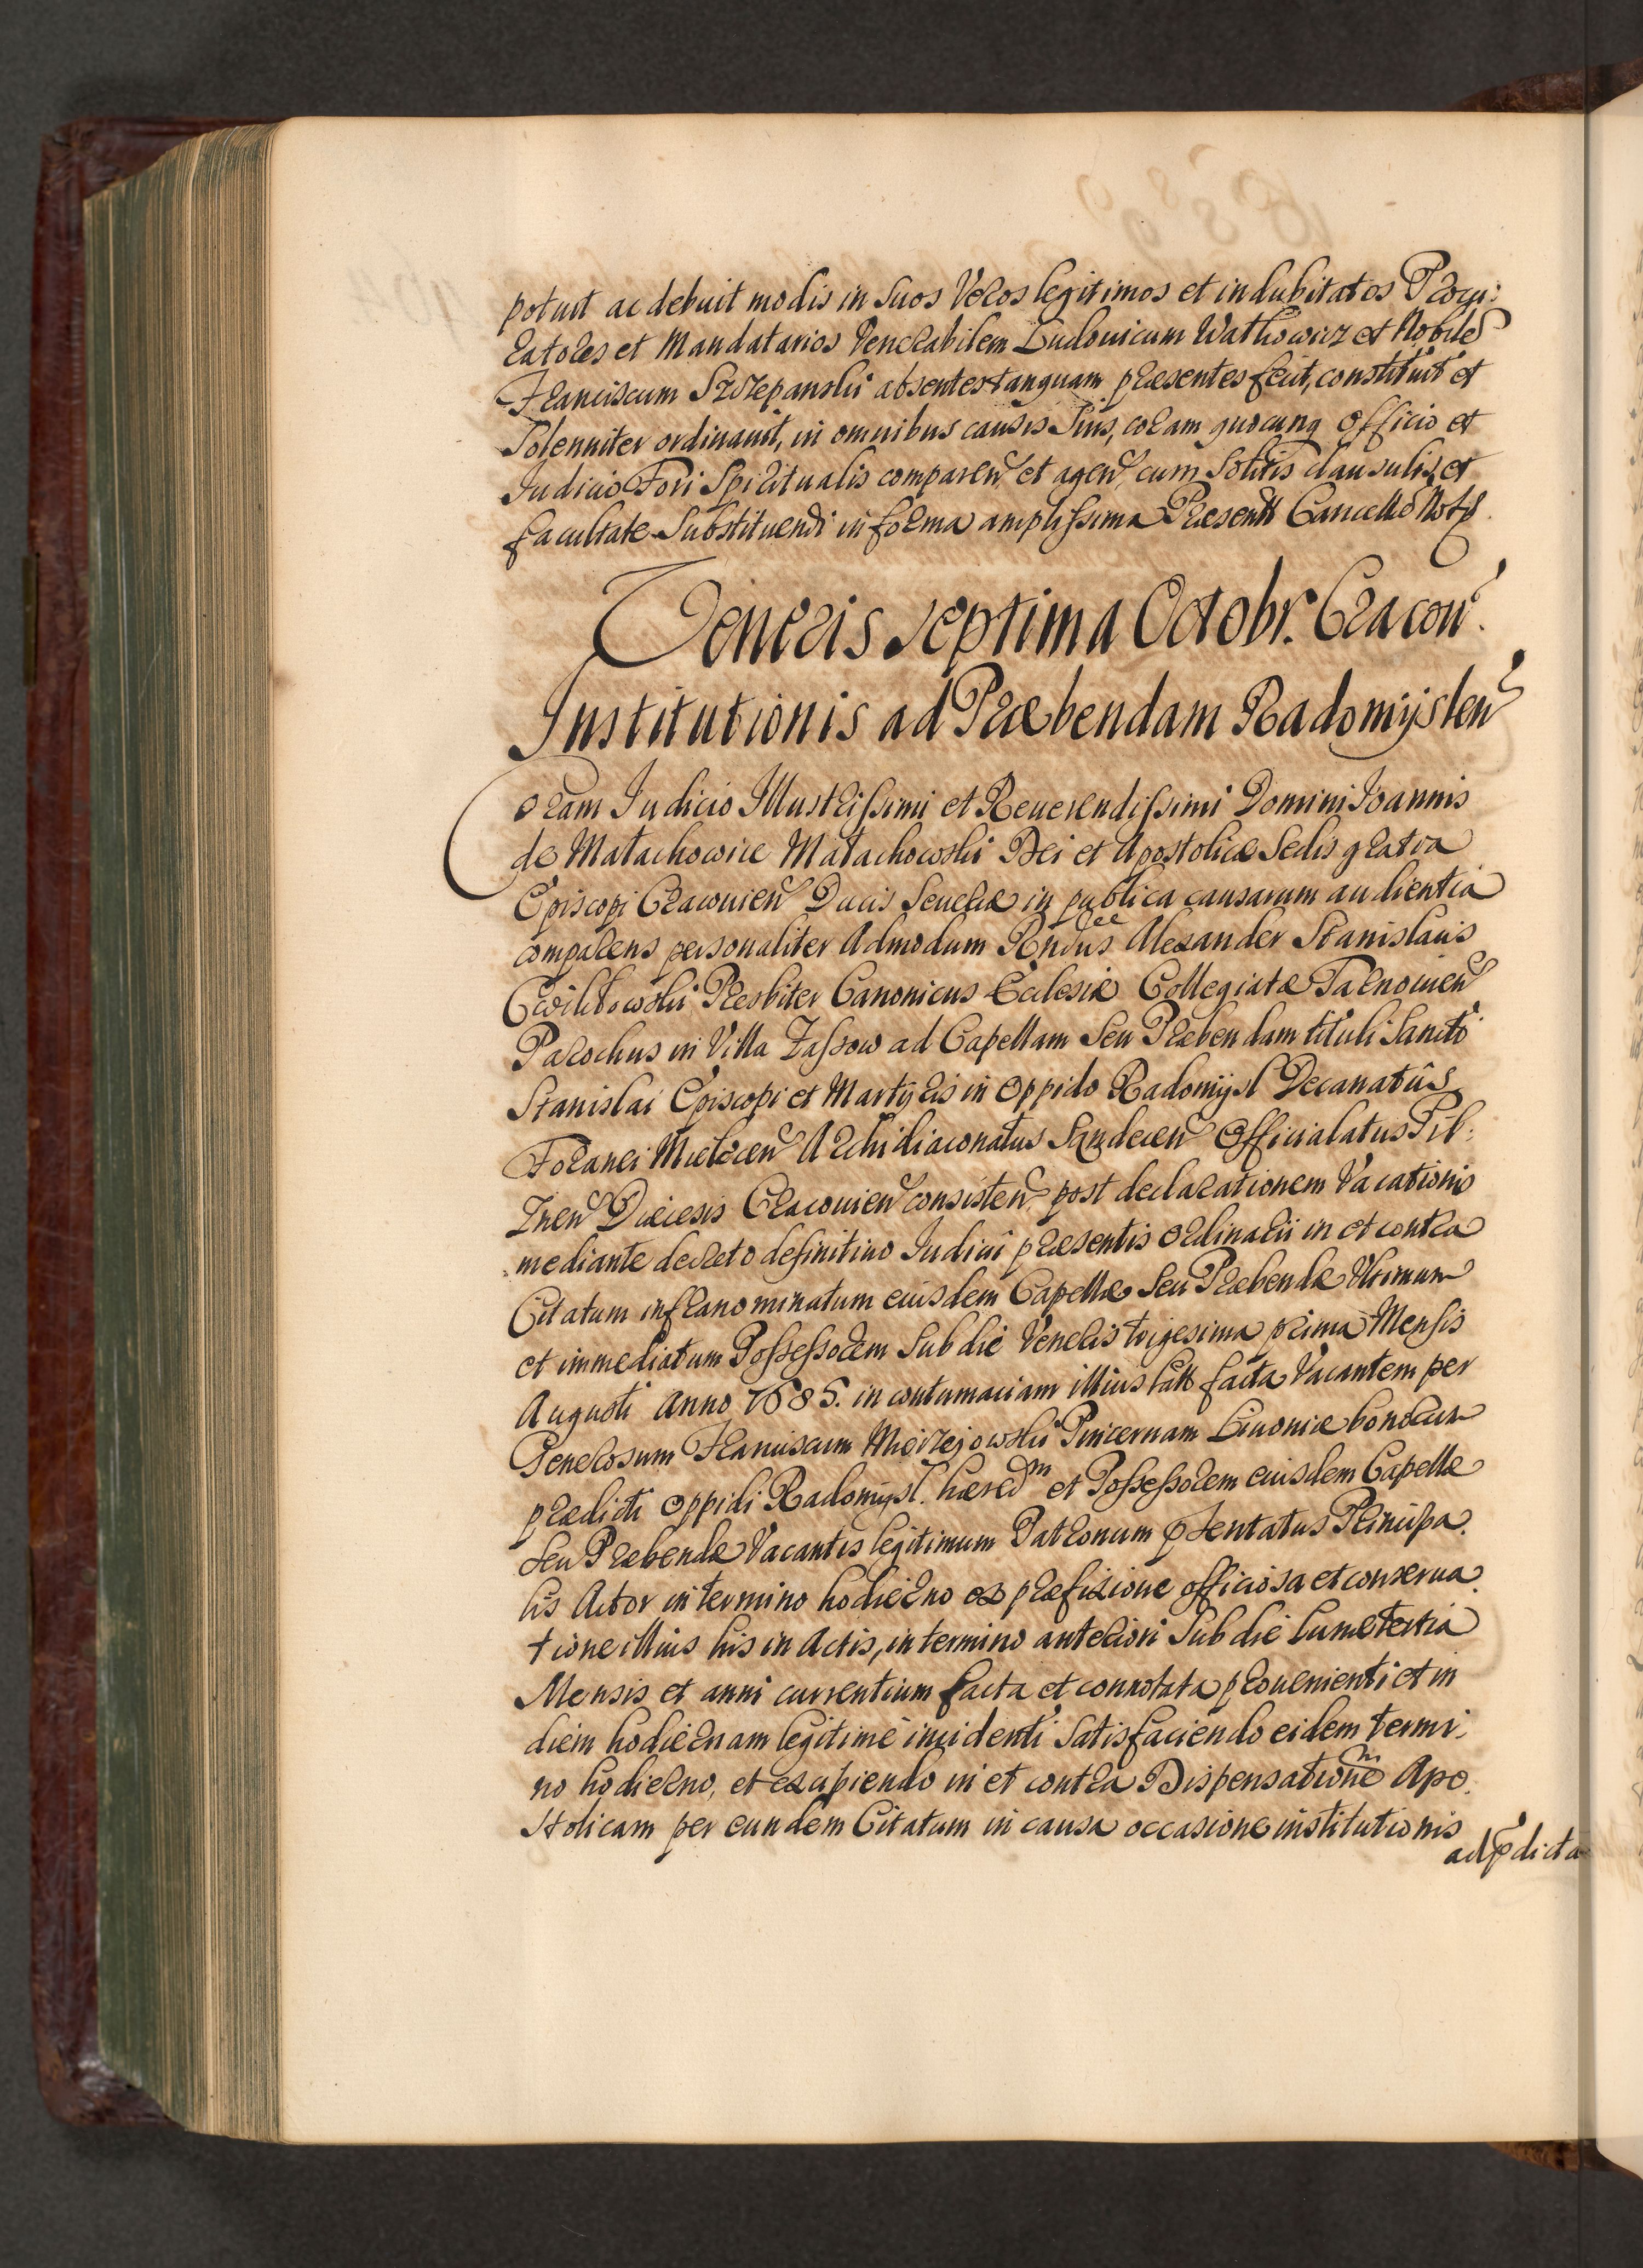 potuit ac debuit modis in Suos Veros legitimos et indubitatos Procu:
ratores et Mandatarios Venerabilem Ludouicum Wathowicz et Nobile
Franciscum Szczepanski absentes tanquam præsentes fecit, constituit et
Solenniter ordinauit, in omnibus causis Suis, coram quocunq Officio et
Iudicio Fori Spiritualis comparen et agen, cum Solitis clausulis, et
facultate Substituendi in forma amplissima Præsentt Cancell Not
Veneris septima Octobr. Cracou.
Institutionis ad Præbendam Radomijslen
Coram Iudicio Illustrissimi et Reuerendissimi Domini Ioannis
de Małachowice Małachowski Dei et Apostolicæ Sedis gratia
Episcopi Cracouien Ducis Seueriæ in publica causarum audientia
comparens personaliter Admodum Rndus Alexander Stanislaus
Cwilikowski Presbiter Canonicus Ecclesiæ Collegiatæ Tarnouien
Parochus in Villa Zassow ad Capellam Seu Præbendam tituli Sancti
Stanislai Episcopi et Martyris in Oppido Radomijsl Decanatûs
Foranei Mielecen Archidiaconatus Sandecen Officialatus Pil:
znen Diæcesis Cracouien consisten, post declarationem Vacationis
mediante decreto definitiuo Iudicii præsentis Ordinarii in et contra
Citatum infranominatum eiusdem Capellæ Seu Præbendæ Vltimum
et immediatum Possessorem Sub die Veneris trigesima prima Mensis
Augusti Anno 1685. in contumaciam illius latt facta Vacantem per
Generosum Franciscum Mierzejowski Pincernam Liuoniæ bonorum
prædicti Oppidi Radomijsl. hæredm et Possessorem eiusdem Capellæ
Seu Præbendæ Vacantis legitimum Patronum pntentatus Principa.
lis Actor in termino hodierno ex præfixione officiosa et conserua.
tione illius his in Actis, in termino anteriori Sub die Lunæ tertia
Mensis et anni currentium facta et connotata prouenienti et in
diem hodiernam legitimè incidenti Satisfaciendo eidem termi:
no hodierno, et excipiendo in et contra Dispensationem Apo.
stolicam per eundem Citatum in causa occasione institutionis
ad pdicta